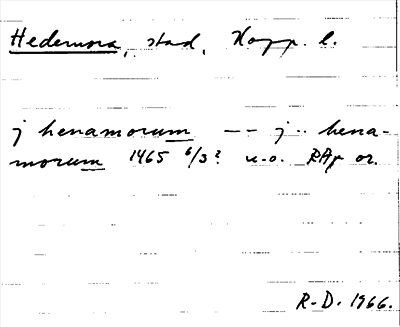 Hedemora, stad, Kopp. l.
j henamorum -- j.. hena-
morum 1465 6/3? u.o. RAp or.
R-D. 1966.